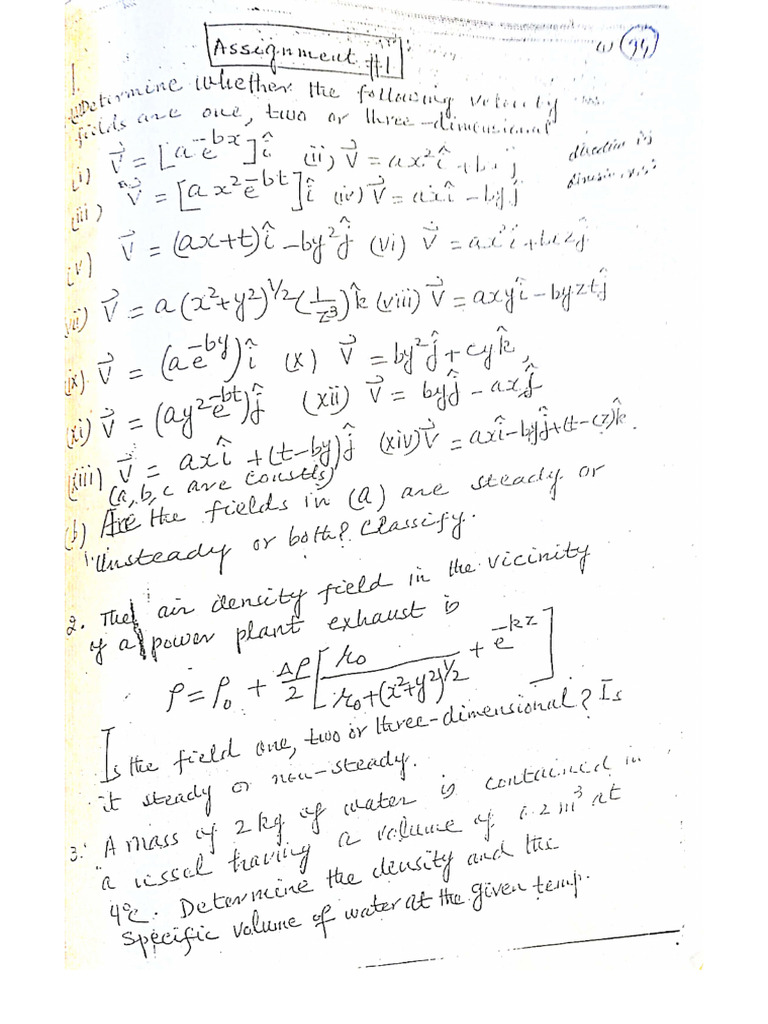 Assignment #1
(94)
1.
Determine whether the following velocity
fields are one, two or three-dimensional
(i) V⃗ = [a e^{-bx}] î (ii) V⃗ = ax² î + bx ĵ
(iii) V⃗ = [a x² e^{-bt}] î (iv) V⃗ = ax î - by ĵ
(v) V⃗ = (ax+t) î - by² ĵ (vi) V⃗ = ax² î + bxz ĵ
(vii) V⃗ = a(x²+y²)^{1/2} (1/z³) k̂ (viii) V⃗ = axy î - byzt ĵ
(ix) V⃗ = (a e^{-by}) î (x) V⃗ = by² ĵ + cy k̂,
(xi) V⃗ = (ay² e^{-bt}) ĵ (xii) V⃗ = by ĵ - ax ĵ
(xiii) V⃗ = ax î + (t-by) ĵ (xiv) V⃗ = ax î - by ĵ + (t-cz) k̂.
(a, b, c are constts)
(b) Are the fields in (a) are steady or
unsteady or both? Classify.
2. The air density field in the vicinity
of a power plant exhaust is
ρ = ρ₀ + Δρ/2 [ r₀ / (r₀ + (x²+y²)^{1/2}) + e^{-kz} ]
Is the field one, two or three-dimensional? Is
it steady or non-steady.
3. A mass of 2 kg of water is contained in
a vessel having a volume of .2 m³ at
4°c. Determine the density and the
specific volume of water at the given temp.